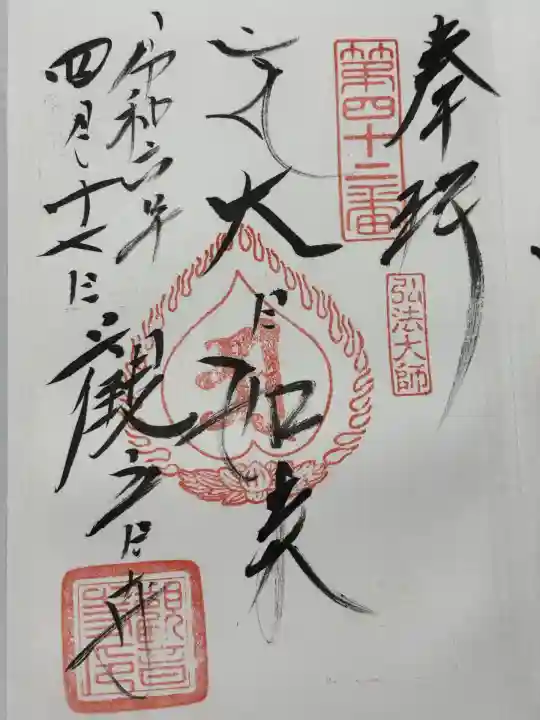 奉拝
第四十二番
弘法大師
大日如来
令和六年
四月十七日
観音寺